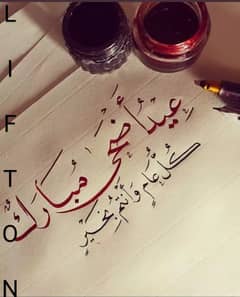 LIFTON
عيد أضحى مبارك
كل عام وأنتم بخير